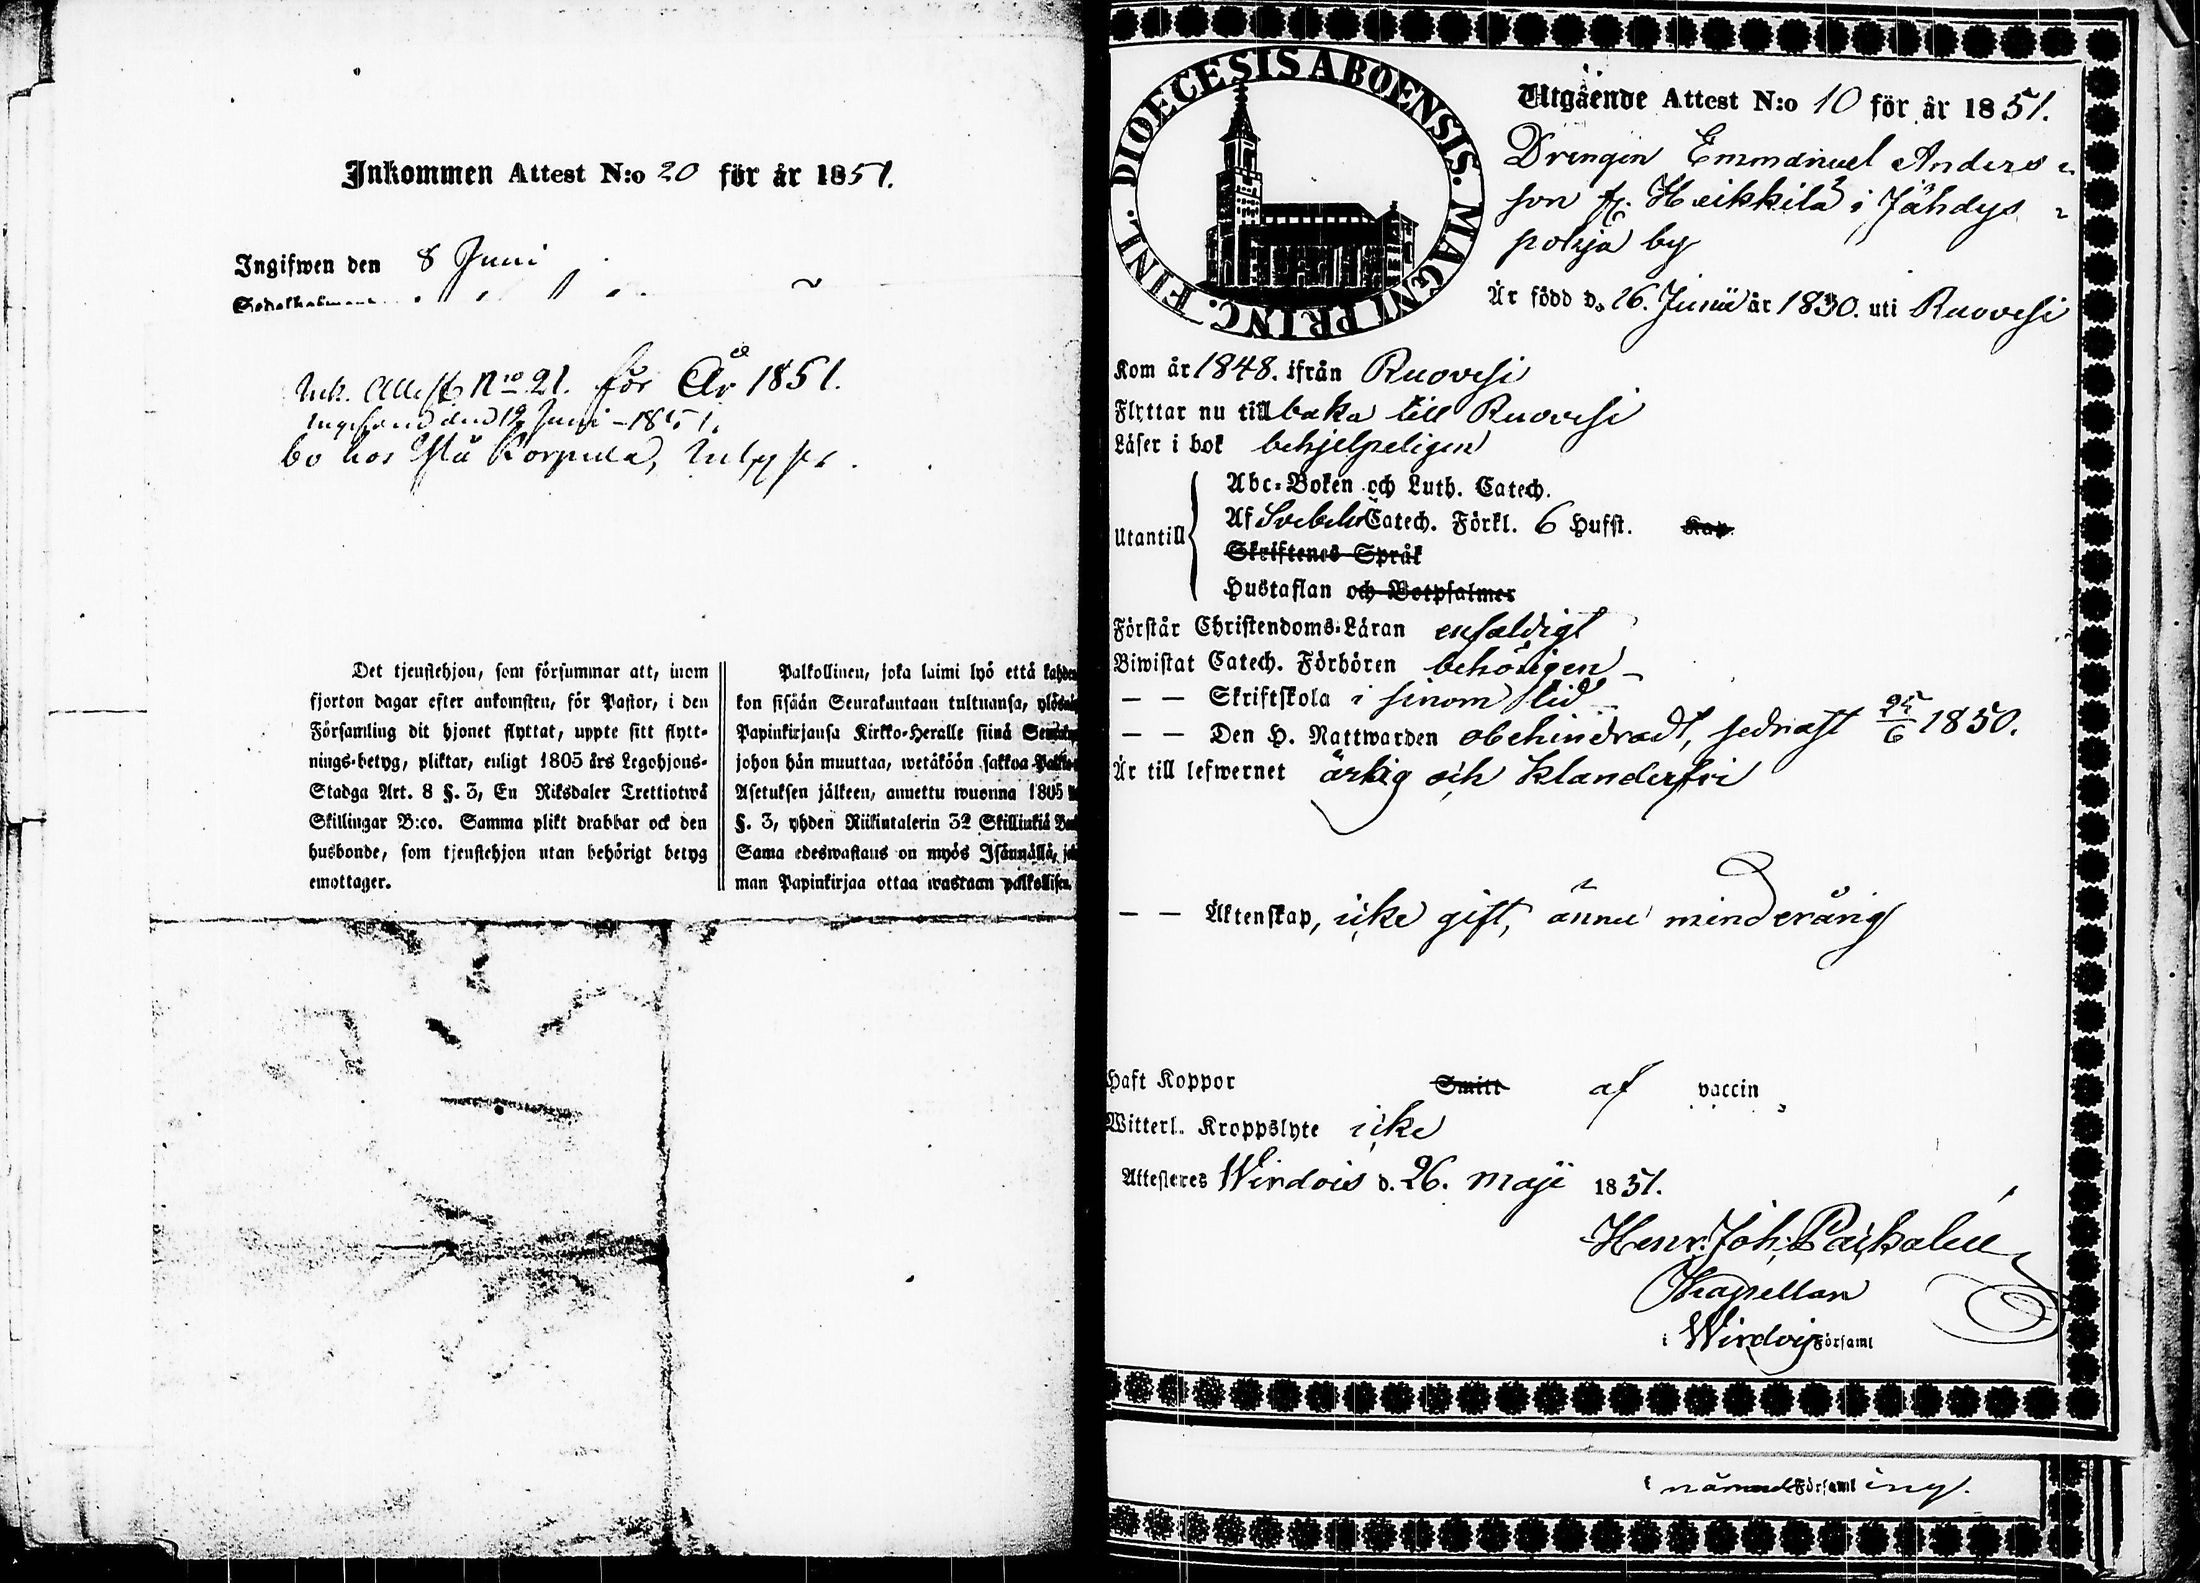 Inkommen Attest N:o 20 för år 1851.
Ingifwen den 8 Juni
Ink. Attest No 21. för År 1851.
den 12 Juni - 1851.
bo hos
Det tjenstehjon, som försummar att, inom
fjorton dagar efter ankomsten, för Pastor, i den
Församling dit hjonet flyttat, uppte sitt flytt-
nings-betyg, pliktar, enligt 1805 års Legohjons-
Stadga Art. 8 §. 3, En Riksdaler Trettiotwå
Skillingar B:co. Samma plikt drabbar ock den
husbonde, som tjenstehjon utan behörigt betyg
emottager.
Palkollinen, joka laimi lyö että
kon sisään Seurakuntaan tultuansa,
Papinkirjansa Kirkko-Heralle siinä
johon hän muuttaa, wetäköön sakkoa
Asetuksen jälkeen, annettu wuonna 1805
§. 3, yhden Riikintalerin 32 Skillinkiä
Sama edeswastaus on myös Isännällä,
man Papinkirjaa ottaa wastaan palkollisen.
DIOECESIS ABOENSIS. MAGNI PRINC. FINL.
Utgående Attest N:o 10 för år 1851.
Drengen Emmanuel Anders-
son fr. Heikkilä i Jähdys-
pohja by
Är född d. 26. Junii år 1830. uti Ruovesi
Kom år 1848. ifrån Ruovesi
Flyttar nu tillbaka till Ruovesi
Läser i bok behjelpeligen
Utantill
Abc-Boken och Luth. Catech.
Af Svebelii Catech. Förkl. 6 Hufst. Kap.
Skriftenes Språk
Hustaflan och Botpsalmer
Förstår Christendoms-Läran enfaldigt
Biwistat Catech. Förhören behörigen
— — Skriftskola i sinom tid
— — Den H. Nattwarden obehindradt, sednast 25/6 1850.
Är till lefwernet ärlig och klanderfri
— — Äktenskap, icke gift, ännu minderårig
Haft Koppor Smitt af vaccin
Witterl. Kroppslyte icke
Attesteres Wirdois d. 26. maji 1851.
Henr. Joh.
Kapellan
i Wirdois Församl
i Församl ing.